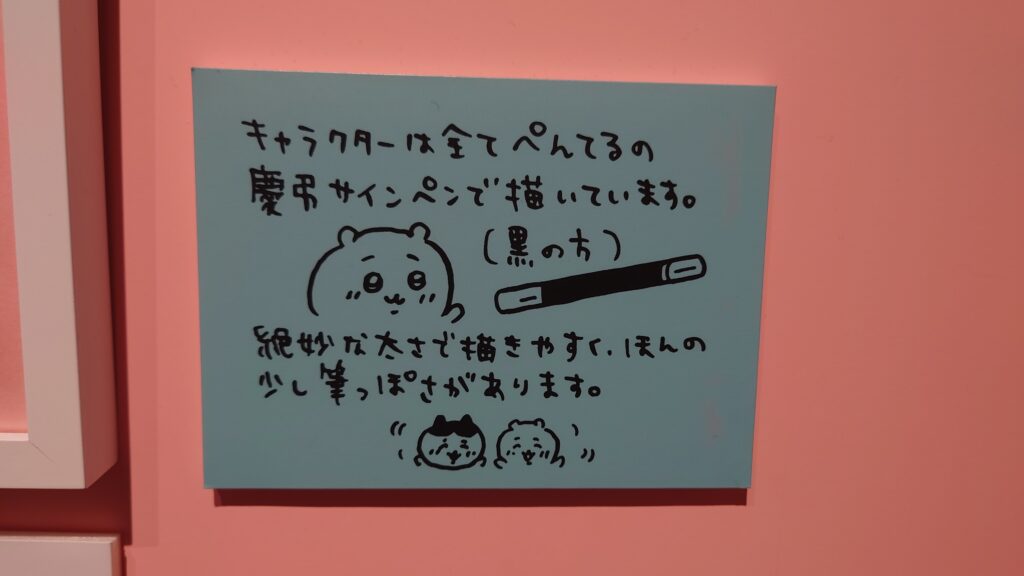 キャラクターは全てぺんてるの
慶弔サインペンで描いています。
(黒の方)
絶妙な太さで描きやすく、ほんの
少し筆っぽさがあります。